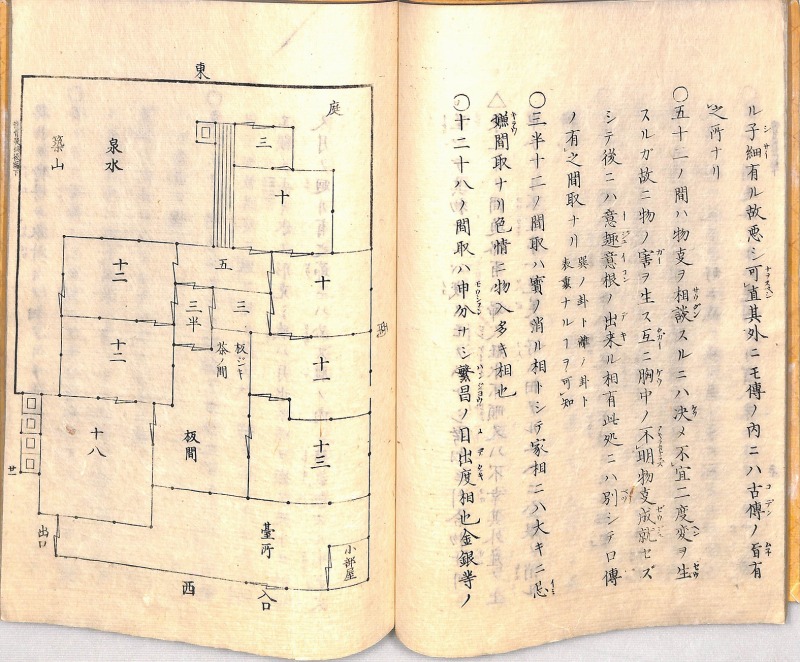 ル子細有ル故悪シ可直其外ニモ傳ノ内ニハ古傳ノ旨有
之所ナリ
○五十二ノ間ハ物事ヲ相談スルニハ決メ不宜二度変ヲ生
スルガ故ニ物ノ害ヲ生ス互ニ胸中ノ不明物事成就セズ
シテ後ニハ意趣意根ノ出来ル相有此処ニハ別シテ口傳
ノ有之間取ナリ
巽ノ卦ト離ノ卦ト
表裏ナルヿヲ可知
○三半十二ノ間取ハ實ヲ消ル相トシテ家相ニハ大キニ忌
嫌間取ナリ色情ニ物入多キ相也
○十二十八ノ間取ハ申分ナシ繁昌ノ目出度相也金銀等ノ
東
庭
三
十
泉水
築山
五
十
十二
三半
三
十二
茶ノ間
板ジキ
十一
十三
十八
板間
臺所
小部屋
出口
西
入口